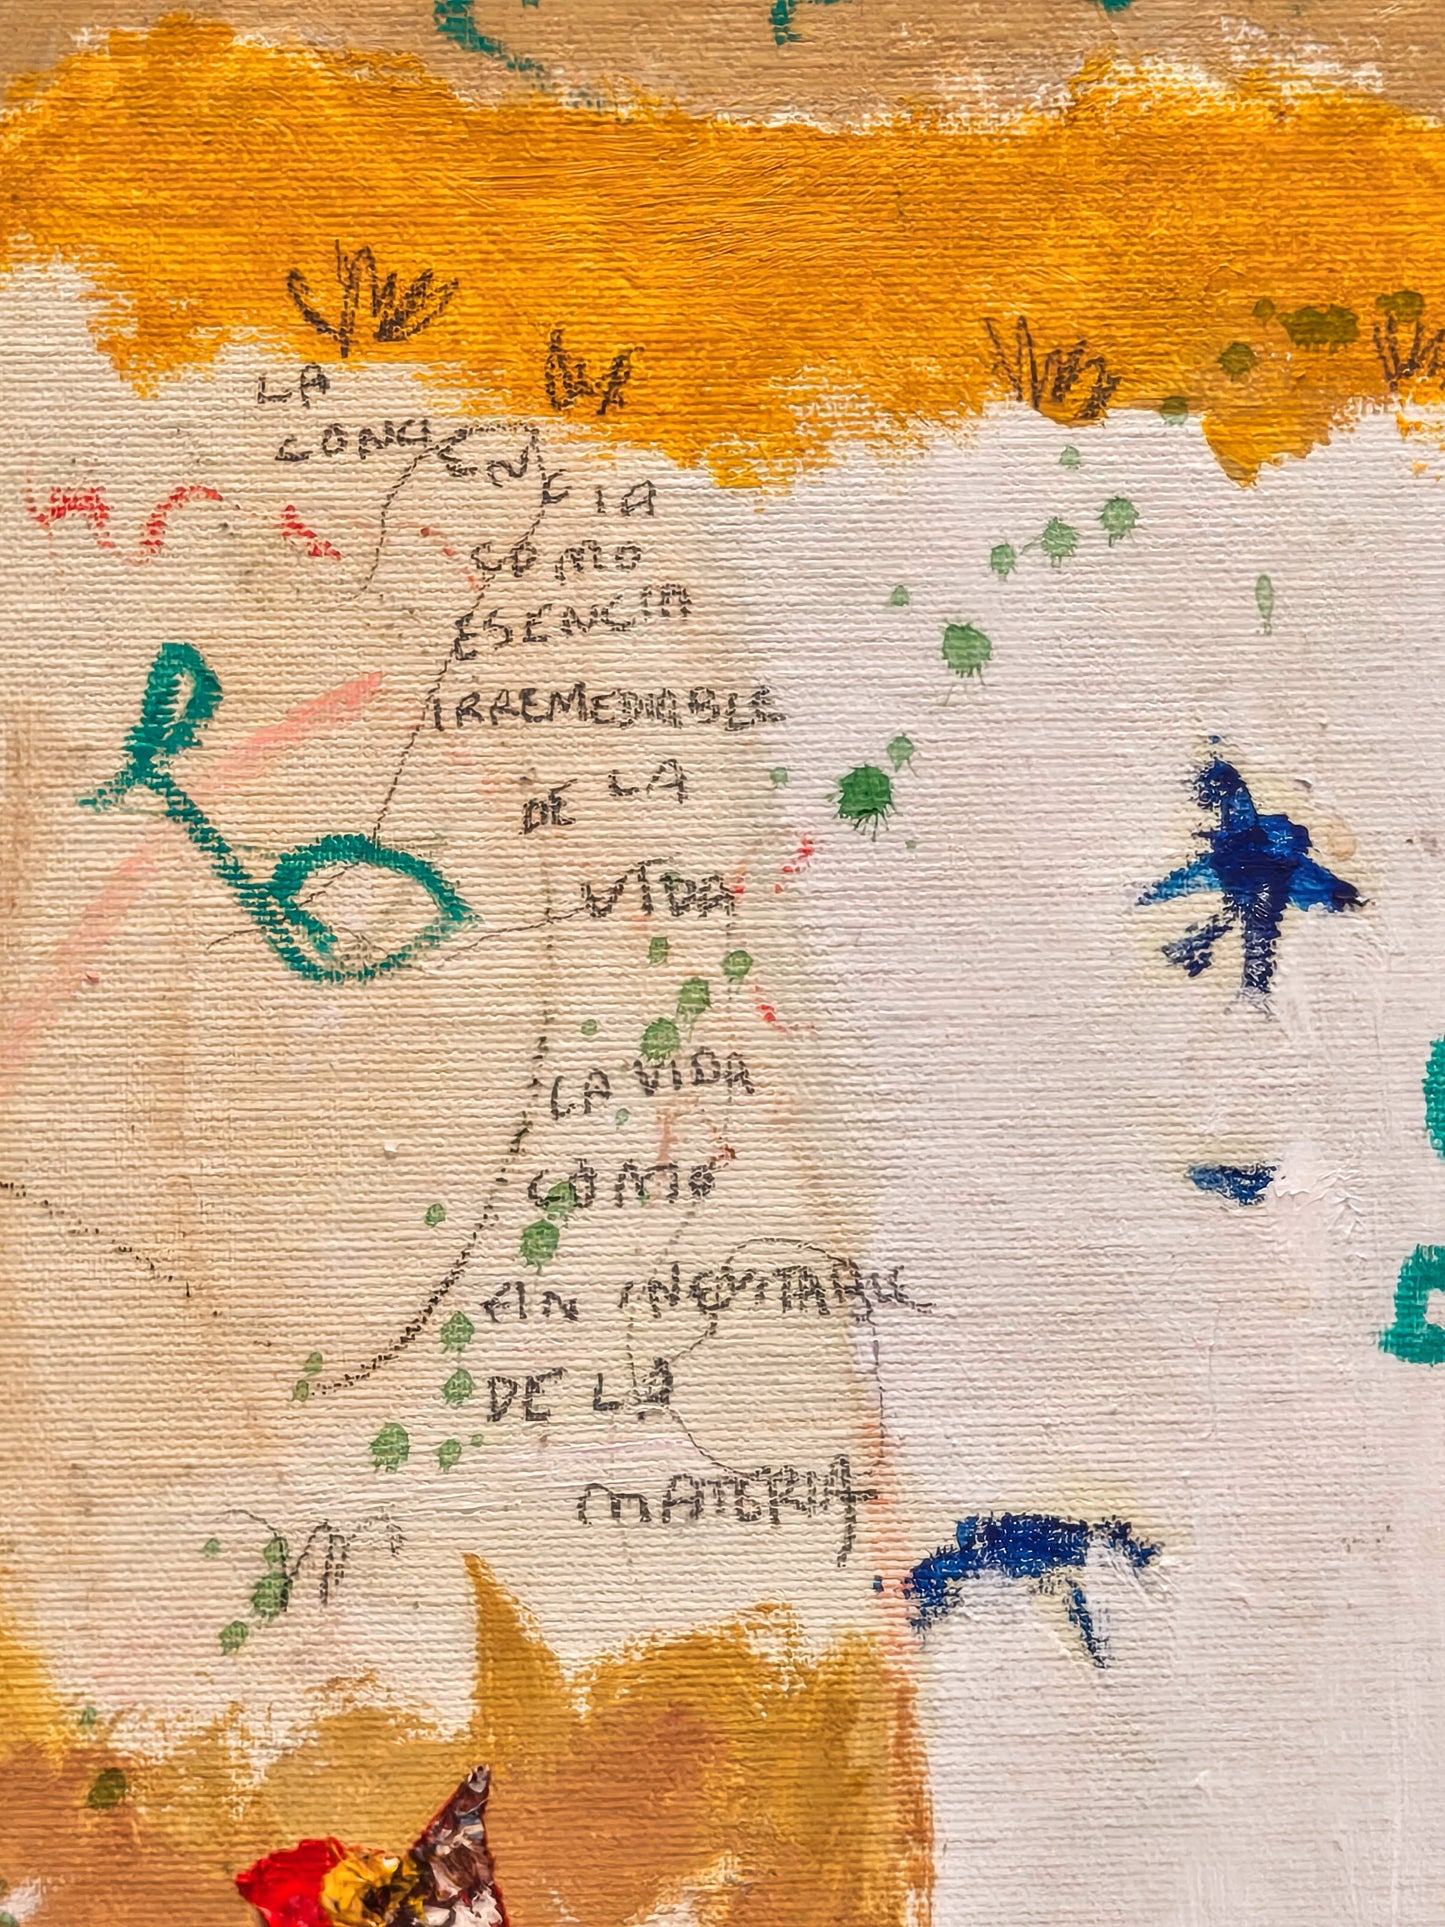 LA
CONCIENCIA
COMO
ESENCIA
IRREMEDIABLE
DE LA
VIDA
LA VIDA
COMO
FIN INEVITABLE
DE LA
MATERIA